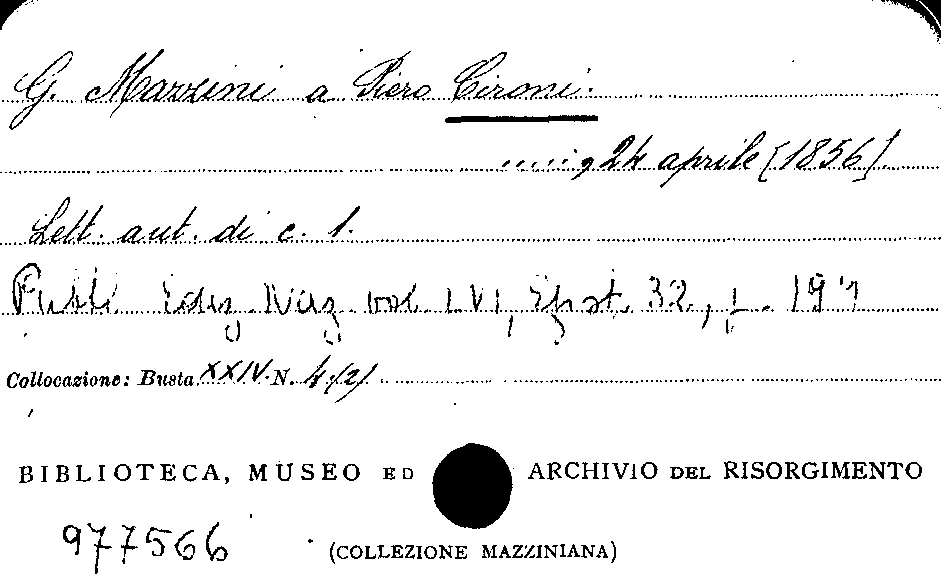 G. Mazzini a Piero Cironi.
......, 24 aprile [1856].
Lett. aut. di c. 1.
Publ. Ediz. Naz. vol. LVI, Epist. 32, p.
Collocazione: Busta XXIV. N. 4 (2)
BIBLIOTECA, MUSEO ED ARCHIVIO DEL RISORGIMENTO
977566 (COLLEZIONE MAZZINIANA)